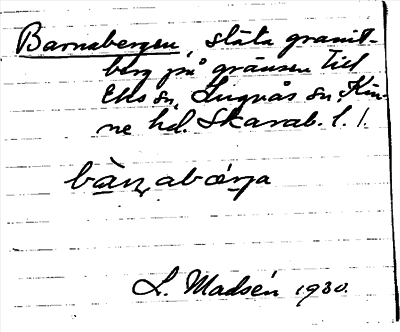 Barnabergen, släta granit-
berg på gränsen till
Eks sn, Lugnås sn, Kin-
ne hd. Skarab. l.
bàrn̥abærja
L. Madsén 1930.